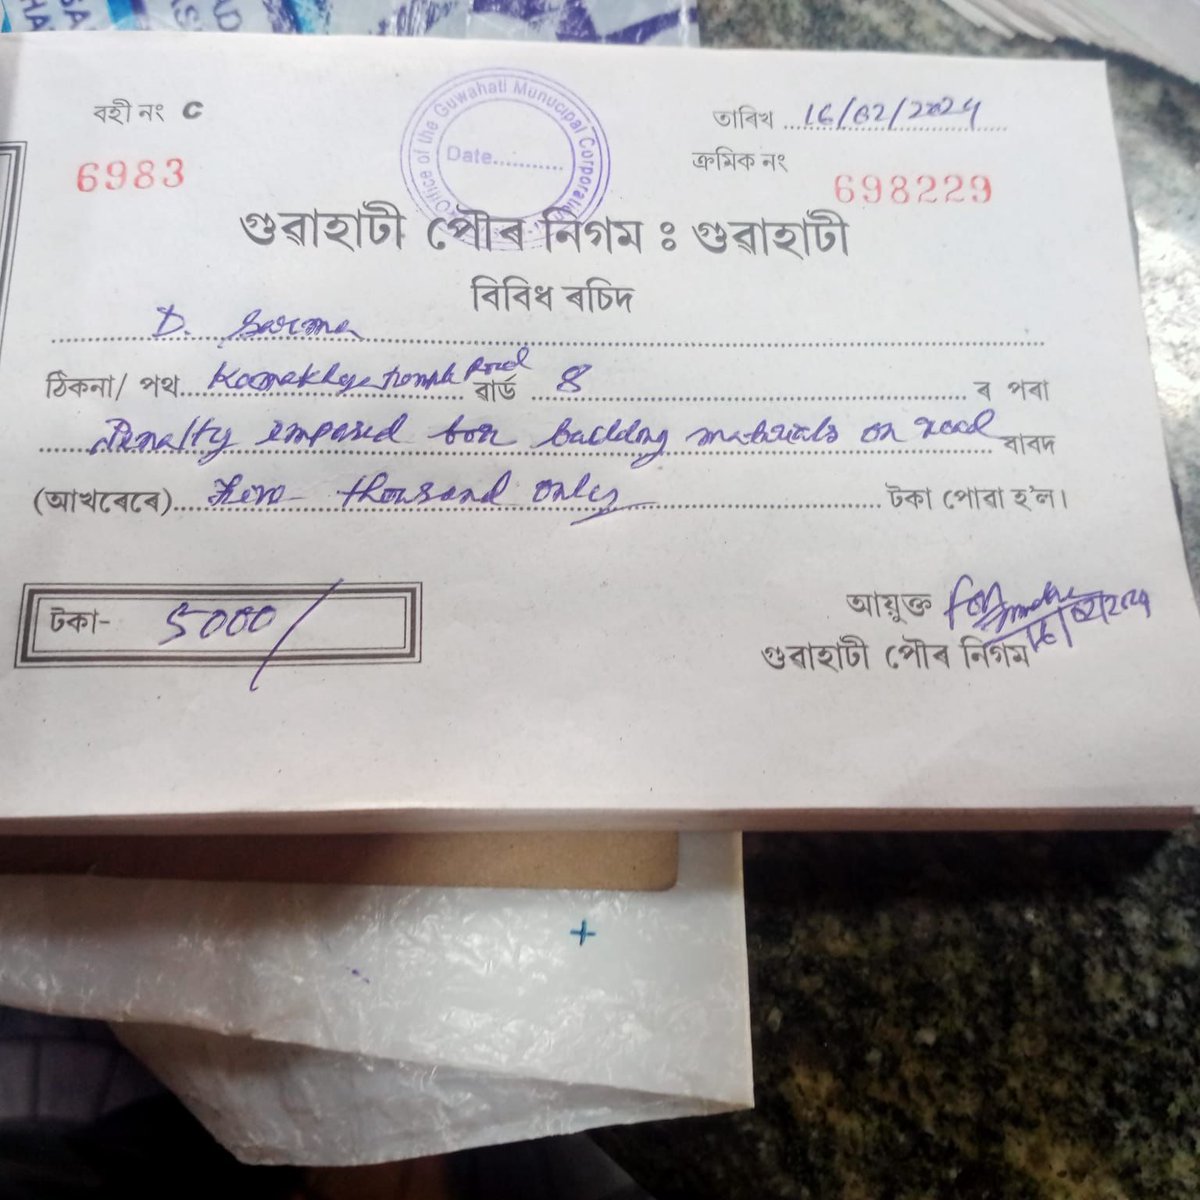 বহী নং C
তাৰিখ 16/02/2024
Office of the Guwahati Munucipal Corporati
Date............
ক্ৰমিক নং
6983
698229
গুৱাহাটী পৌৰ নিগম : গুৱাহাটী
বিবিধ ৰচিদ
D. Sarma
ঠিকনা/ পথ Kamakhya temple Road ৱাৰ্ড 8 ৰ পৰা
Penalty imposed for building materials on road বাবদ
(আখৰেৰে) thousand only টকা পোৱা হ'ল।
টকা- 5000/
আয়ুক্ত for
16/02/2024
গুৱাহাটী পৌৰ নিগম